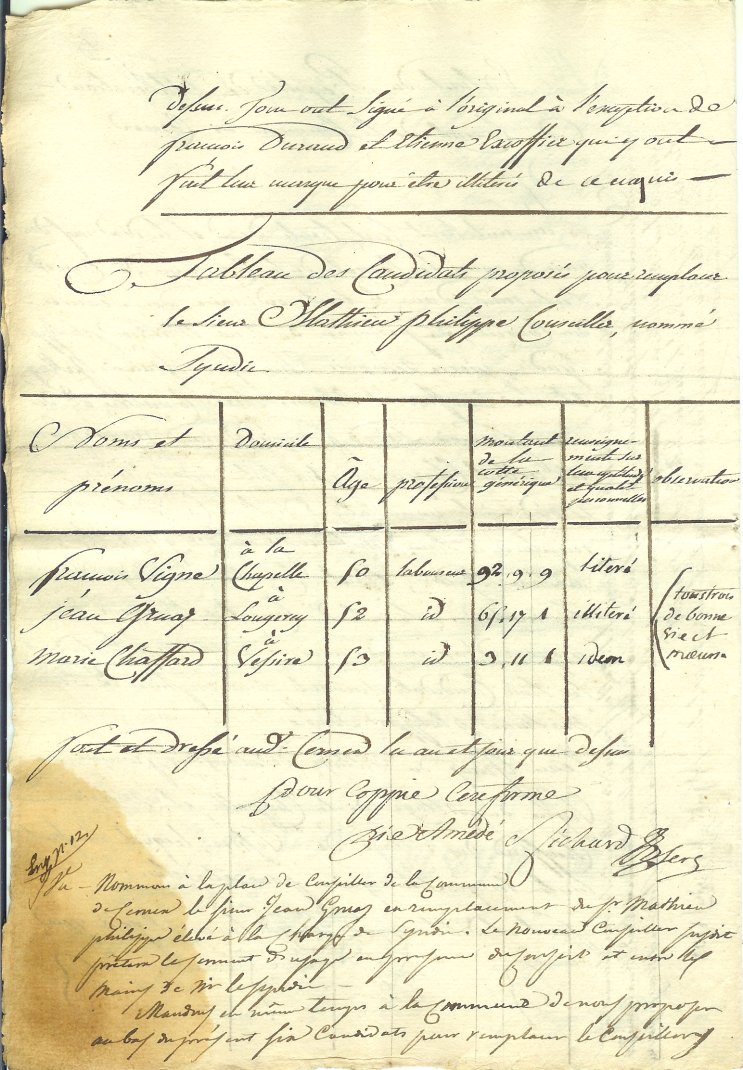 dessus. Tous ont signé à l'original à l'exception de
françois Durand et Etienne Excoffier qui y ont
fait leur marque pour être illiterés de ce enquis
Tableau des Candidats proposés pour remplacer
le sieur Mathieu philippe Conseiller, nommé
Syndic
Noms et prénoms | Domicile | Âge | profession | montant de la cotte générique | renseignements sur leur aptitude et qualités personnelles | observation
françois Vigne | à la Chapelle | 50 | laboureur | 92. 9. 9 | literé
jean Gruaz | à Lougeray | 52 | id | 65. 17 1 | illiteré
marie Chaffard | à Vessire | 53 | id | 3. 11 1 | idem
tous trois
de bonne
vie et
mœurs
fait et dressé aud.t Cernex les an et jour que dessus
Pour Coppie Conforme
Pie Amédé Richard
Enr. n.° 12
Vu - Nommons à la place de Conseiller de la Commune
de Cernex le sieur Jean Gruaz en remplacement du S.r Mathieu
philippe élevé à la charge de Syndic. Le nouveau Conseiller susdit
prêtera le serment d'usage en présence du Conseil et entre les
mains de Mr le syndic
Mandons en même temps à la Commune de nous proposer
au bas du présent six Candidats pour remplacer le Conseiller